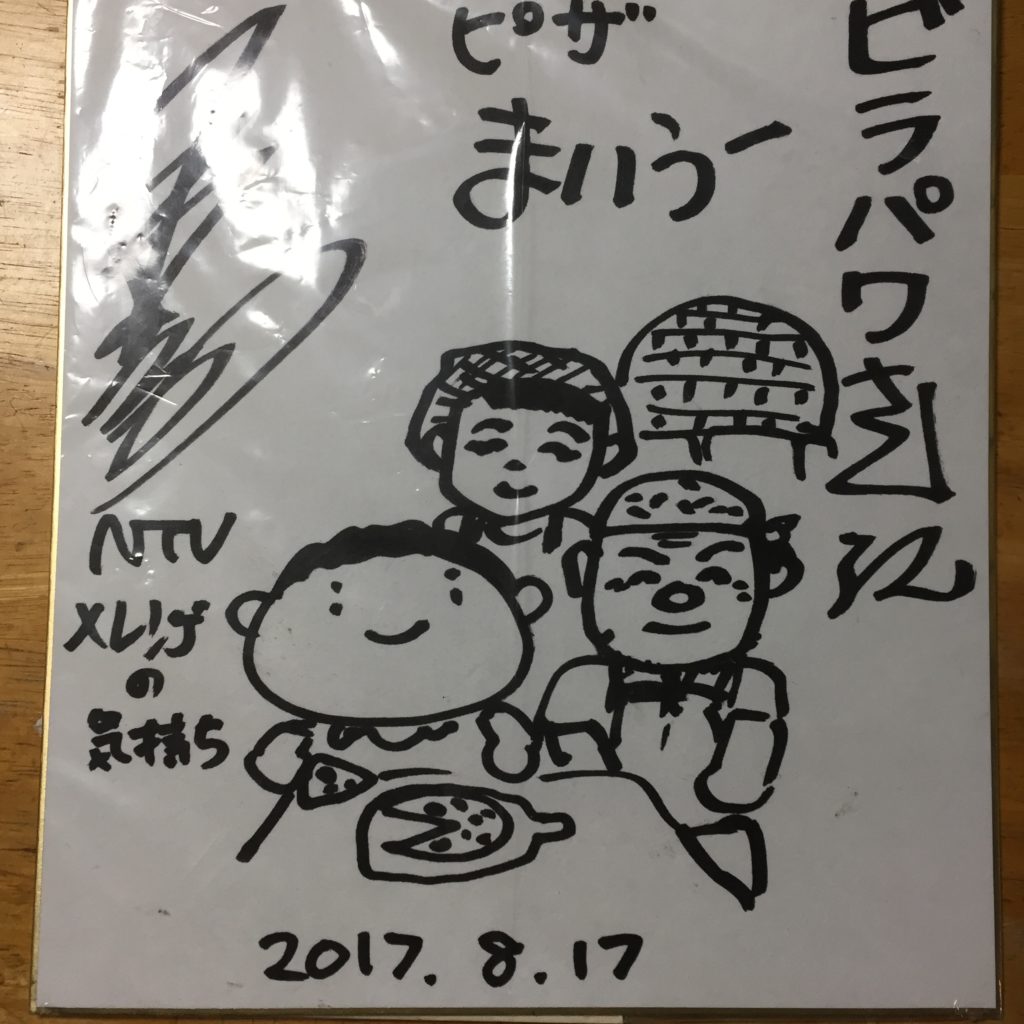 ビラパワさん江
ピザ
まいう〜
NTV
メレンゲ
の
気持ち
2017.8.17